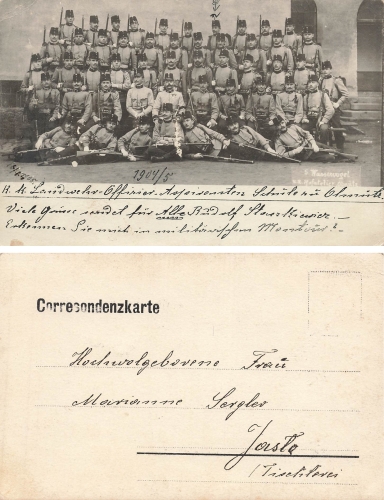 1904/5
K. k. Landwehr-Offizier-Aspiranten Schule zu Olmütz
Viele Grüsse sendet für Alle Rudolf
Erkennen Sie mich in militärischen Montur?
Corresondenzkarte
Hochwolgeborene Frau
Marianne Sergler
Jasło
(Tischlerei